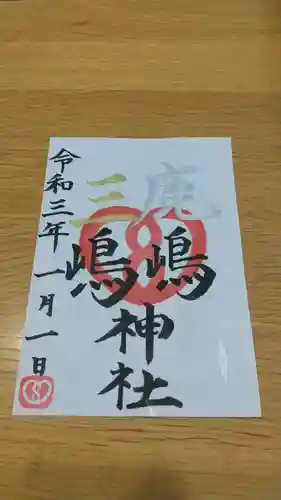 鹿嶋
三嶋
神社
令和三年一月一日